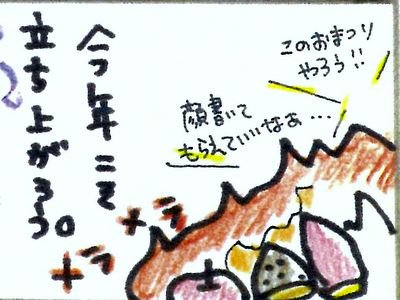 今年こそ
立ち上がろう。
このおまつり
やろう!!
顔書いて
もらえていいなぁ…
メラ
メラ